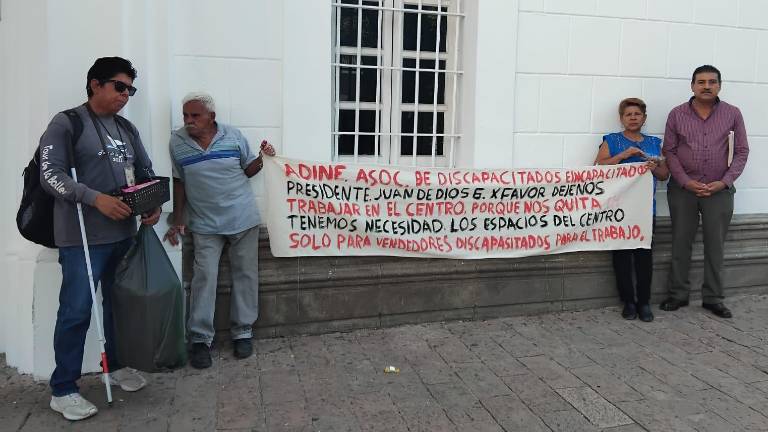 ADINF. ASOC. DE DISCAPACITADOS E INCAPACITADOS
PRESIDENTE. JUAN DE DIOS E. X FAVOR DEJENOS
TRABAJAR EN EL CENTRO. PORQUE NOS QUITA
TENEMOS NECESIDAD. LOS ESPACIOS DEL CENTRO
SOLO PARA VENDEDORES DISCAPASITADOS PARA EL TRABAJO.